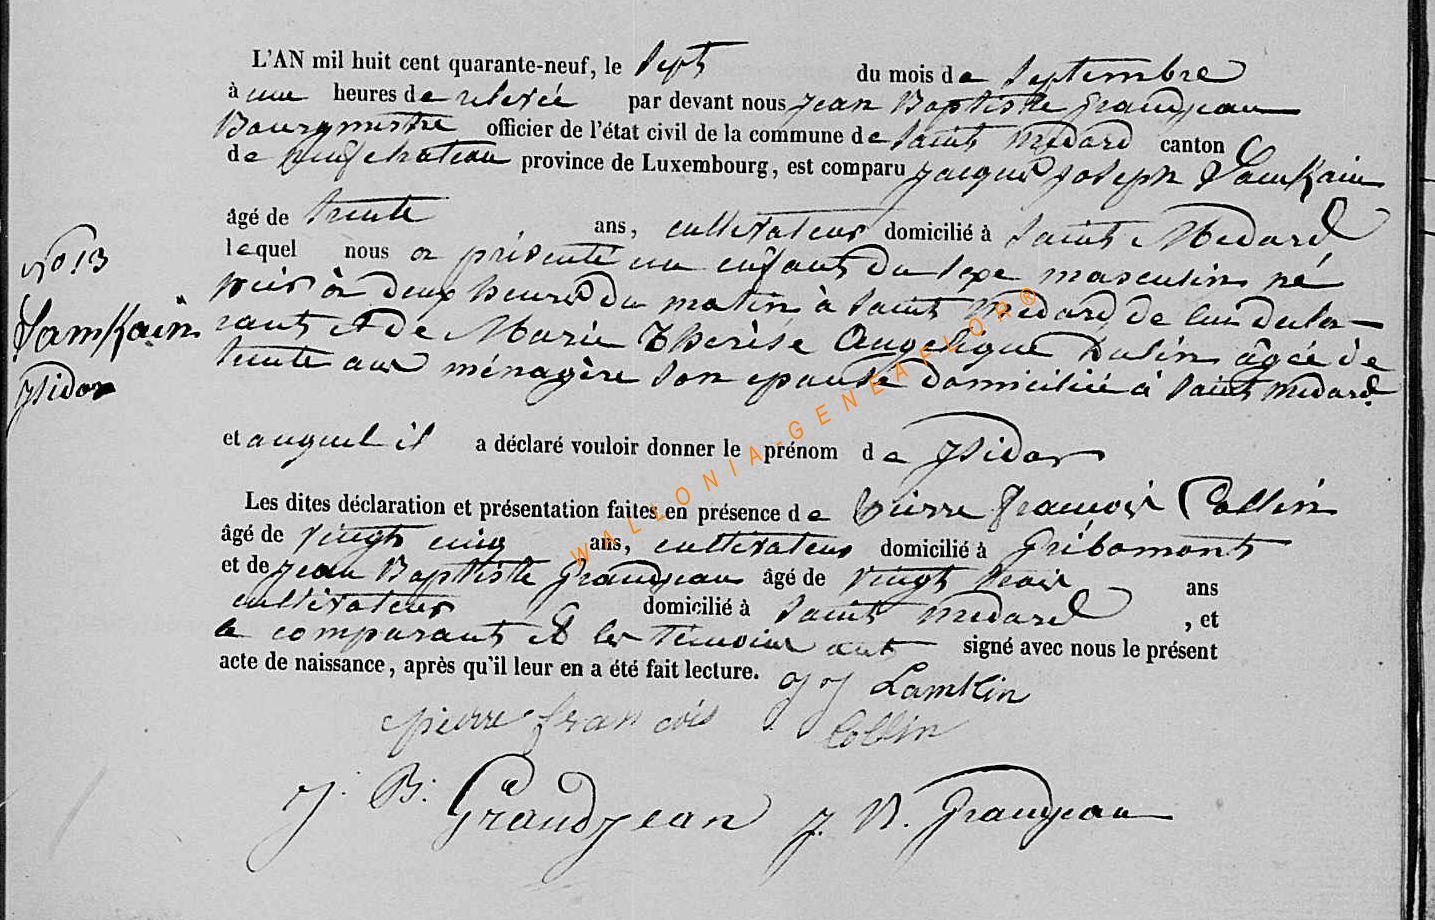 L'AN mil huit cent quarante-neuf, le Sept du mois de Septembre
à une heures de relevée par devant nous Jean Baptiste Grandjean
Bourgmestre officier de l'état civil de la commune de Saint Médard canton
de Neufchateau province de Luxembourg, est comparu Jacques Joseph Lamkain
âgé de trente ans, cultivateur domicilié à Saint Médard
lequel nous a présenté un enfant du sexe masculin né
à deux heures du matin à Saint Médard, de lui décla-
rant et de Marie Thérèse Angelique Dulin âgée de
trente ans ménagère son epouse domiciliée à Saint Medard
et auquel il a déclaré vouloir donner le prénom de Isidor
Les dites déclaration et présentation faites en présence de Pierre François Collin
âgé de vingt cinq ans, cultivateur domicilié à Gribomont
et de Jean Baptiste Grandjean âgé de vingt trois ans
cultivateur domicilié à Saint Medard, et
le comparant et les témoins ont signé avec nous le présent
acte de naissance, après qu'il leur en a été fait lecture.
J J Lamklin
pierre francois Collin
J. B. Grandjean J. B. Grandjean
No 13
Lamkain
Isidor
WALLONIA-GENEAFLOR®